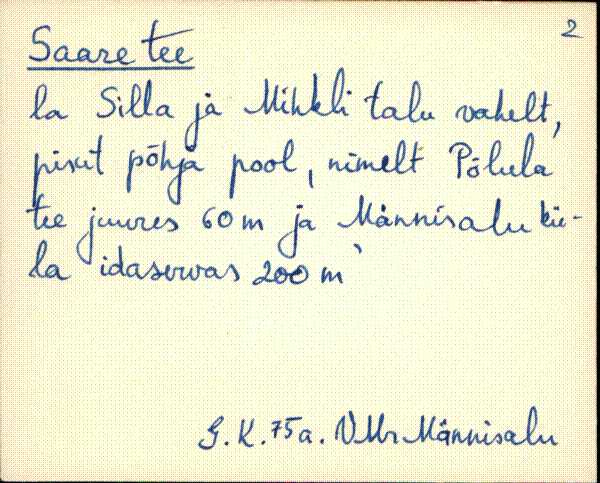 2
Saare tee
la Silla ja Mihkli talu vahelt,
pisut põhja pool, nimelt Põlula
tee juures 60 m ja Männisalu kü-
la idaservas 200 m
G. K. 75 a. VMr Männisalu